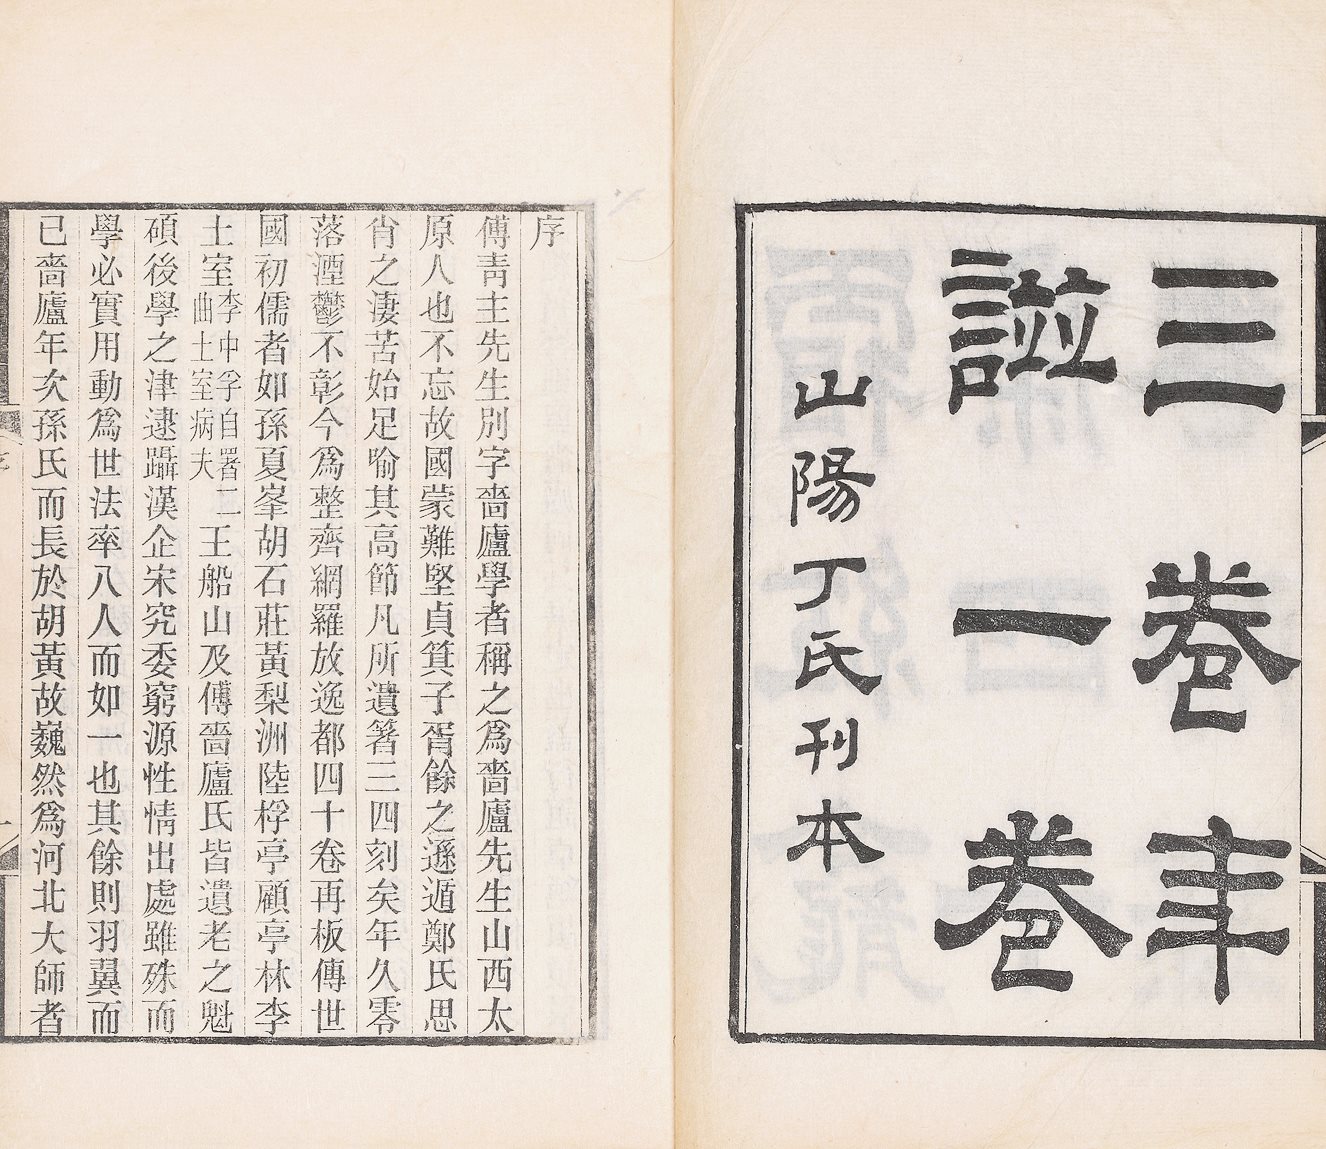 三卷年
譜一卷
山陽丁氏刊本
序
傅青主先生別字嗇廬學者稱之爲嗇廬先生山西太
原人也不忘故國蒙難堅貞箕子胥餘之遜遁鄭氏思
肖之淒苦始足喻其高節凡所遺箸三四刻矣年久零
落湮鬱不彰今爲整齊網羅放逸都四十卷再板傳世
國初儒者如孫夏峯胡石莊黃梨洲陸桴亭顧亭林李
土室李中孚自署二曲土室病夫王船山及傅嗇廬氏皆遺老之魁
碩後學之津逮躡漢企宋究委窮源性情出處雖殊而
學必實用動爲世法率八人而如一也其餘則羽翼而
已嗇廬年次孫氏而長於胡黃故巍然爲河北大師者